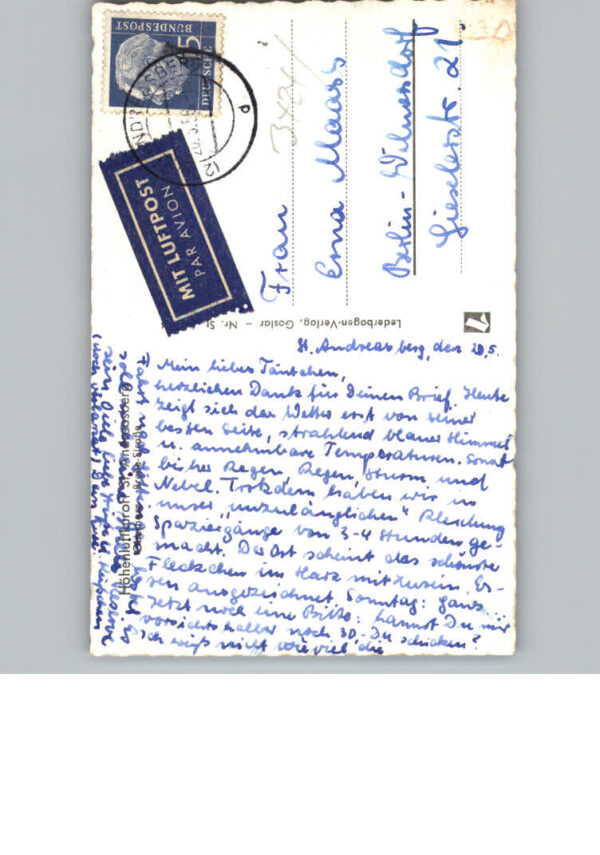 DEUTSCHE
BUNDESPOST
15
MIT LUFTPOST
PAR AVION
Frau
Erna Maass
Berlin-Wilmersdorf
Gieselerstr. 21.
Lederbogen-Verlag, Goslar – Nr. St
St. Andreasberg, den 20.5.
Mein liebes Täntchen,
herzlichen Dank für Deinen Brief. Heute
zeigt sich das Wetter erst von seiner
besten Seite, strahlend blauer Himmel
u. annehmbare Temperaturen. Sonst
bisher Regen, Regen, Sturm und
Nebel. Trotzdem haben wir in
unser „unzulänglichen" Kleidung
Spaziergänge von 3-4 Stunden ge-
macht. Der Ort scheint das schönste
Fleckchen im Harz mitzusein. Es-
sen ausgezeichnet. Sonntag: Gans.
Jetzt noch eine Bitte: kannst Du mir
vorsichtshalber noch 30,- DM schicken?
Ich weiß nicht wie viel die
Fahrt nach
sein. Viele liebe Grüße
Höhenluftkurort St. Andreasberg